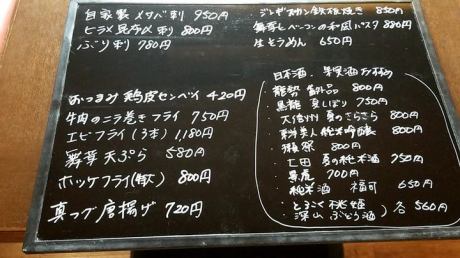 自家製〆サバ刺 950円
ヒラメ昆布〆刺 800円
ぶり刺 780円
おつまみ 鶏皮センベイ 420円
牛肉のニラ巻きフライ 750円
エビフライ(3本) 1,180円
舞茸天ぷら 580円
ホッケフライ(特大) 800円
真フグ唐揚げ 720円
ジンギスカン鉄板焼き 850円
舞茸とベーコンの和風パスタ 880円
生そうめん 650円
日本酒・果実酒おすすめ
800円
・黒龍 夏しぼり 750円
・大信州 夏のさらさら 800円
純米吟醸 800円
800円
・七田 夏の純米酒 750円
700円
・純米酒 福司 650円
・とろこく桃姫
・深山ぶどう酒 各560円